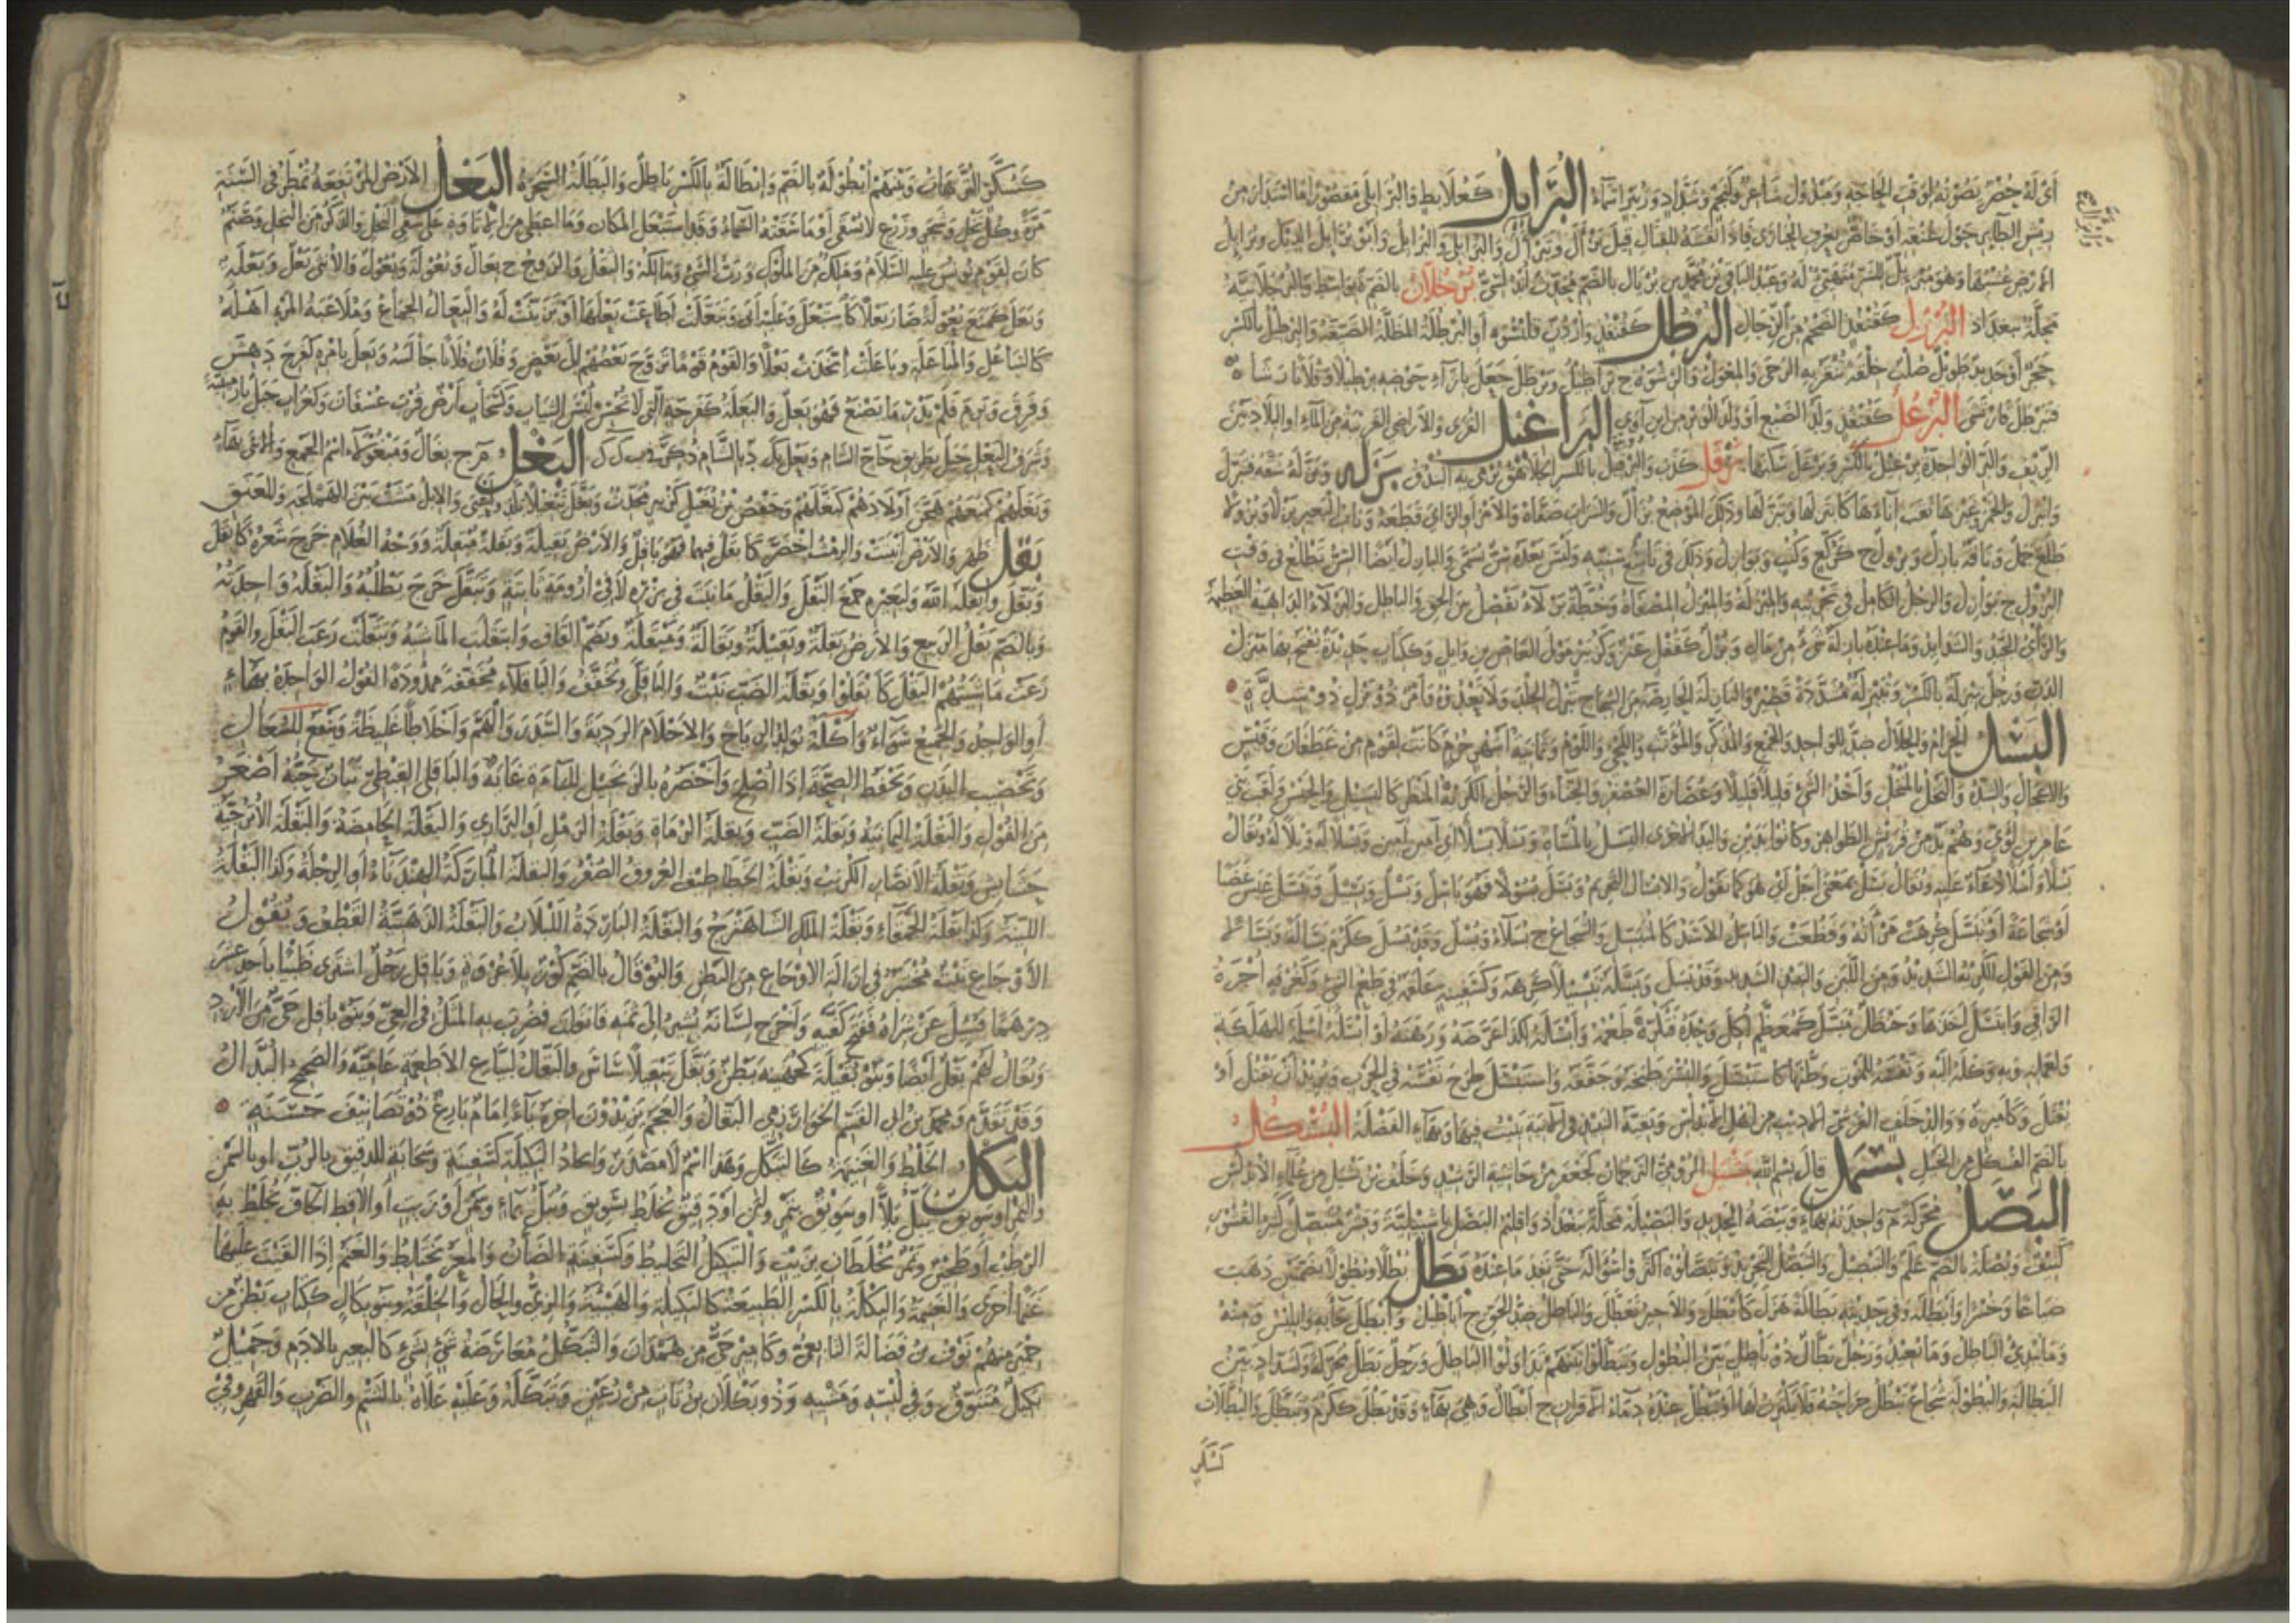 البُرَائِل كعُلابِط والبُرَائِلى مقصورًا ما استدار من
ريش الطاير حول عنقه أو خاص بعرف الحبارى فاذا نفشه للقتال قيل برأل وتبرأل وابرأل وأبو برائل الديك وبرائل
الارض عشبها وهو مبرئل للشر متهيئ له وعبد الباقى بن محمد بن بريال بالضم محدث أندلسى برجلان بالضم بواسط والبرجلانية
محلة ببغداد البرزل كقنفذ الضخم من الرجال البرطل كقنفذ واردن قلنسوة او البرطلة المظلة الضيقة والبرطيل بالكسر
حجر أو حديد طويل صلب خلقة ينقر به الرحى والمعول والرشوة ج براطيل وبرطل جعل بازاء حوضه برطيلا وفلانا رشاه
فتبرطل فارتشى البرعل كقنفذ ولد الضبع أو ولد الوبر من ابن آوى البراغيل القرى والاراضى القريبة من الماء او البلاد بين
الريف والبر الواحدة برغيل بالكسر وبرغل سكنها برقل كذب والبرقيل بالكسر الجلاهق يرمى به البندق بزله وبزله شقه فتبزل
وانبزل والخمر وغيرها ثقب اناءها كابتزلها وتبزلها وذلك الموضع بزال والشراب صفاه والامر أو الرأى قطعه وناب البعير بزلا وبزولا
طلع جمل وناقة بازل وبزول ج كركع وكتب وبوازل وذلك فى تاسع سنيه وليس بعده سن تسمى والبازل أيضا السن تطلع فى وقت
البزول ج بوازل والرجل الكامل فى تجربته والمبزلة والمبزل المصفاة وخطة بزلاء تفصل بين الحق والباطل والبزلاء الداهية العظيمة
والرأى الجيد والشدايد وما عنده بازلة شىء من مال وبزل كقفل عنز وكزبير مولى العاص بن وايل وككتاب حديدة يفتح بها مبزل
الدن
البسل الحرام والحلال ضد للواحد والجمع والمذكر والمؤنث واللحى واللوم وثمانية أشهر حرم كانت لقوم من غطفان وقيس
والاعجال والشدة والنخل بالمنخل وأخذ الشىء قليلا قليلا وعصارة العصفر والحناء والرجل الكريه المنظر كالبسيل والحبس ولقب بنى
عامر بن لؤى وهم يد من قريش الظواهر وكانوا يدين واليد الاخرى اليسل بالمثناة وبسلا بسلا أى آمين آمين وبسلا له ويلا له ويقال
بسلا وأسلا دعاء عليه ويقال بسل بمعنى أجل أى هو كما تقول والابسال التحريم وبسل بسولا فهو باسل وبسل وبسيل وتبسل عبس غضبا
أو شجاعة أو تبسل كرهت مرآته وفظعت والباسل الاسد كالمتبسل والشجاع ج بسلاء وبسل وقد بسل ككرم بسالة وبسالا
ومن القول الكريه الشديد ومن اللبن والنبيذ الشديد وقد بسل وبسله تبسيلا كرهه وكسفينة علقمة فى طعم الشىء وكغرفة أجرة
الراقى وابتسل أخذها وحنظل مبسل كمعظم أكل وحده فتكره طعمه وأبسله لكذا عرضه ورهنه أو أبسله أسلمه للهلكة
ولعمله وبه وكله اليه ونفسه للموت وطنها كاستبسل والبسر طبخه وجففه واستبسل طرح نفسه فى الحرب ويريد أن يقتل أو
يقتل وكأمير ة ووالد خلف القرشى الاديب من أهل الاندلس وبقية النبيذ فى الآنية يبيت فيها وبهاء الفضلة البسكل
بالضم الفسكل من الخيل بسمل قال بسم الله بشيل الرومى الترجمان كجعفر من حاشية الرشيد وخلف بن بشيل من علماء الاندلس
البصل محركة م واحدته بهاء وبيضة الحديد والبصيلة محلة ببغداد واقليم البصل باشبيلية وقشر متبصل كثير القشور
كثيف وبصلة بالضم علم والتبصيل والتبصل التجريد وتبصلوه أكثروا سؤاله حتى نفد ما عنده بطل بطلا وبطولا بضمهن ذهب
ضياعا وخسرا وأبطله وفى حديثه بطالة هزل كأبطل والاجير تعطل والباطل ضد الحق ج أباطيل وأبطل جاء به وابليس ومنه
وما يبدئ الباطل وما يعيد ورجل بطال ذو باطل بين البطول وتبطلوا بينهم تداولوا الباطل ورجل بطل محركة وكشداد بين
البطالة والبطولة شجاع تبطل جراحته فلا يكترث لها أو تبطل عنده دماء الاقران ج أبطال وهى بهاء وقد بطل ككرم وتبطل والبطلات
كسكر
كسكر الترهات وبينهم أبطولة بالضم وابطالة بالكسر باطل والبطلة السحرة البعل الارض المرتفعة تمطر فى السنة
مرة وكل نخل وشجر وزرع لا يسقى أو ما سقته السماء وقد استبعل المكان وما أعطى من الاتاوة على سقى النخل والذكر من النخل وصنم
كان لقوم يونس عليه السلام وملك من الملوك ورب الشىء ومالكه والثقل والزوج ج بعال وبعولة وبعول والانثى بعل وبعلة
وبعل كمنع بعولة صار بعلا كاستبعل وعليه أبى وتبعلت أطاعت بعلها أو تزينت له والبعال الجماع وملاعبة المرء أهله
كالتباعل والمباعلة وباعلت اتخذت بعلا والقوم قوما تزوج بعضهم الى بعض وفلان فلانا جالسه وبعل بأمره كفرح دهش
وفرق وبرم فلم يدر ما يصنع فهو بعل والبعلة كفرحة التى لا تحسن لبس الثياب وكسحاب أرض قرب عسفان وكغراب جبل بارمينية
وشرف البعل جبل بطريق حاج الشام وبعلبك د بالشام ذكر فى ب ك ك البغل م ج بغال ومبغولاء اسم الجمع والانثى بهاء
وبغلهم كمنعهم هجن أولادهم كبغلهم وحفص بن بغيل كزبير محدث وبغل تبغيلا بلد وأعيى والابل مشت بين الهملجة والعنق
بقل ظهر والارض أنبتت والرمث اخضر كأبقل فيهما فهو باقل والارض بقيلة وبقلة مبقلة ووجه الغلام خرج شعره كأبقل
وبقل وأبقله الله ولبعيره جمع البقل والبقل ما نبت فى بزره لا فى أرومة ثابتة وتبقل خرج يطلبه والبقلة واحدته
وبالضم بقل الربيع والارض بقلة وبقيلة وبقالة ومبقلة وبضم القاف وابتقلت الماشية وتبقلت رعت البقل والقوم
رعت ماشيتهم البقل كأبقلوا وبقلة الضب نبت والباقلى ويخفف والباقلاء مخففة ممدودة الفول الواحدة بهاء
أو الواحد والجميع سواء وأكله يولد الرياح والاحلام الردية والسدر والهم وأخلاطا غليظة وينفع للسعال
وتخصيب البدن ويحفظ الصحة اذا أصلح وأخضره بالزنجبيل للباءة غاية والباقلى القبطى نبات حبه أصغر
من الفول والبقلة اليمانية وبقلة الضب وبقلة الرماة وبقلة الرمل أو البرارى والبقلة الحامضة والبقلة الاترجية
حشايش وبقلة الانصار الكرنب وبقلة الخطاطيف العروق الصفر والبقلة المباركة الهندباء أو الرجلة وكذا البقلة
اللينة وكذا بقلة الحمقاء وبقلة الملك الشاهترج والبقلة الباردة اللبلاب والبقلة الذهبية القطف وبقول
الاوجاع نبت مختبر فى ازالة الاوجاع من البطن والبوقال بالضم كوز بلا عروة وباقل رجل اشترى ظبيا بأحد عشر
درهما فسئل عن شراه ففتح كفيه وأخرج لسانه يشير الى ثمنه فانفلت فضرب به المثل فى العى وبنو باقل حى من الازد
ويقال لهم بقل أيضا وبنو بقيلة كجهينة بطن وبقل تبقيلا ساس والبقال لبياع الاطعمة عامية والصحيح البدال
وقد تقدم ومحمد بن أبى القسم الخوارزمى البقال والعجم يزيدون آخره ياء امام بارع ذو تصانيف حسنة
البكل الخلط والغنيمة كالتبكل وهذا اسم لا مصدر واتخاذ البكيلة كسفينة وسحابة للدقيق بالرب أو بالسمن
والتمر أو سويق يبل بلا أو سويق بتمر ولبن أو دقيق يخلط بسويق ويبل بماء وسمن أو زيت أو الاقط الجاف يخلط به
الرطب أو طحين وتمر يخلطان بزيت والتبكل التخليط وكسفينة الضأن والمعز تختلط والغنم اذا القيت عليها
غنما أخرى والغنيمة والبكلة بالكسر الطبيعة كالبكيلة والهيئة والزى والحال والخلقة وبنو بكال ككتاب بطن من
حمير منهم نوف بن فضالة التابعى وكأمير حى من همدان والتبكل معارضة شىء بشىء كالبعير بالادم وجميل
بكيل متنوق وفى لبسه ومشيه وذو بكلان بن ثابت من رعين وتبكله وعليه علاه بالشتم والضرب والقهر وفى